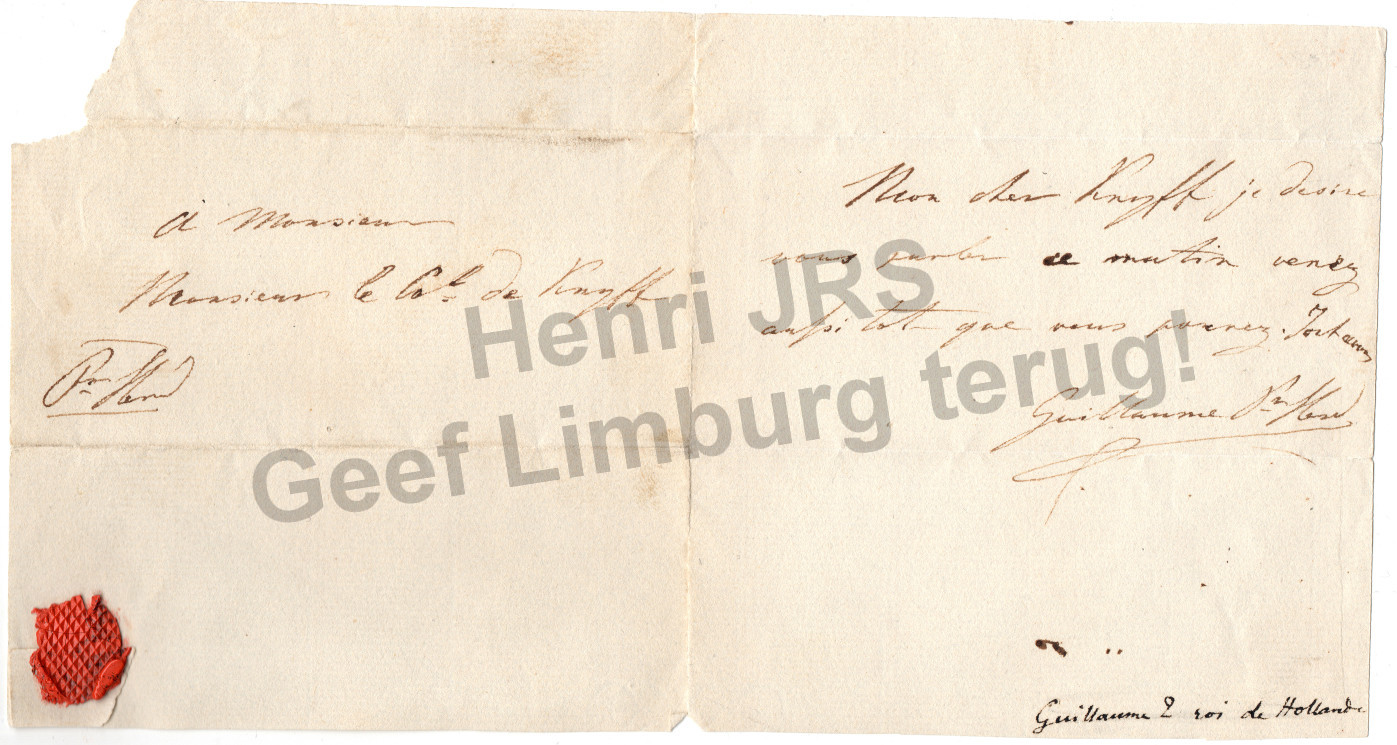 A Monsieur
Monsieur le Col. de Knyff
Pce Hérd
Mon cher Knyff je desire
vous parler ce matin venez
aussi tot que vous pouvez.
Guillaume Pce Hérd
Guillaume 2 roi de Hollande
Henri JRS
Geef Limburg terug!